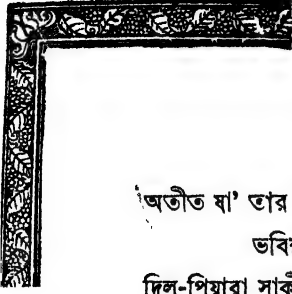 অতীত যা' তার
ভবি
দিল্-পিয়ারা সাকী